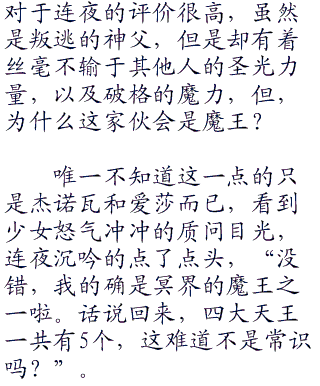 对于连夜的评价很高，虽然
是叛逃的神父，但是却有着
丝毫不输于其他人的圣光力
量，以及破格的魔力，但，
为什么这家伙会是魔王？
唯一不知道这一点的只
是杰诺瓦和爱莎而已，看到
少女怒气冲冲的质问目光，
连夜沉吟的点了点头，“没
错，我的确是冥界的魔王之
一啦。话说回来，四大天王
一共有5个，这难道不是常识
吗？”。